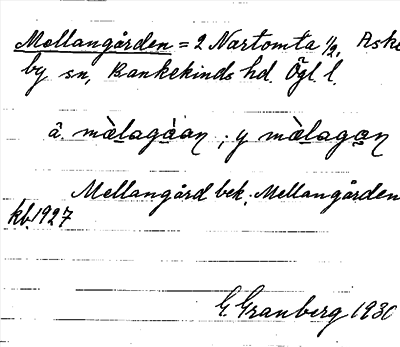 Mellangården = 2 Nartomta 1/2, Aske
by sn, Bankekinds hd. Ögl. l.
â. mὰlagὰan ; y mὰlagan
Mellangård bek. Mellangården
kb. 1927
G. Granberg 1930